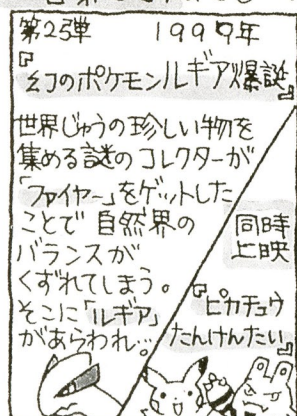 第2弾　1999年
『幻のポケモンルギア爆誕』
世界じゅうの珍しい物を
集める謎のコレクターが
「ファイヤー」をゲットした
ことで自然界の
バランスが
くずれてしまう。
そこに「ルギア」
があらわれ…
同時
上映
『ピカチュウ
たんけんたい』